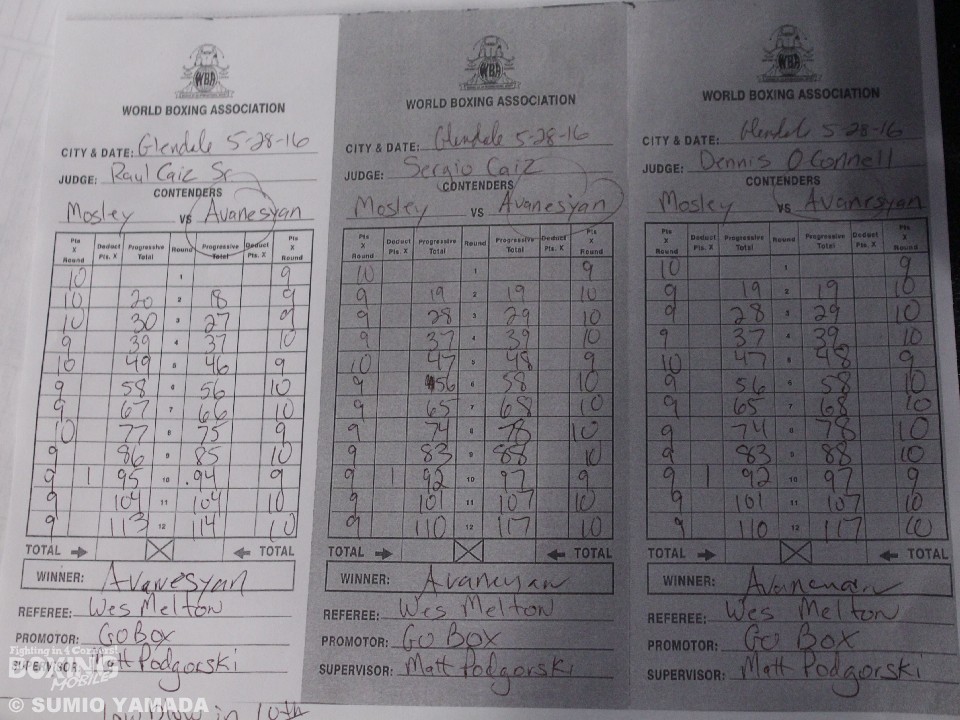 WBA
WORLD BOXING ASSOCIATION
CITY & DATE: Glendale 5-28-16
JUDGE: Raul Caiz Sr
CONTENDERS
Mosley VS Avanesyan
Pts X Round Deduct Pts. X Progressive Total Round Progressive Total Deduct Pts. X Pts X Round
10 1 9
10 20 2 18 9
10 30 3 27 9
9 39 4 37 10
10 49 5 46 9
9 58 6 56 10
9 67 7 66 10
10 77 8 75 9
9 86 9 85 10
9 1 95 10 94 9
9 104 11 104 10
9 113 12 114 10
TOTAL TOTAL
WINNER: Avanesyan
REFEREE: Wes Melton
PROMOTOR: Go Box
SUPERVISOR: Matt Podgorski
Low Blow in 10th
WBA
WORLD BOXING ASSOCIATION
CITY & DATE: Glendale 5-28-16
JUDGE: Sergio Caiz
CONTENDERS
Mosley VS Avanesyan
Pts X Round Deduct Pts. X Progressive Total Round Progressive Total Deduct Pts. X Pts X Round
10 1 9
9 19 2 19 10
9 28 3 29 10
9 37 4 39 10
10 47 5 48 9
9 56 6 58 10
9 65 7 68 10
9 74 8 78 10
9 83 9 88 10
9 1 92 10 97 9
9 101 11 107 10
9 110 12 117 10
TOTAL TOTAL
WINNER: Avanesyan
REFEREE: Wes Melton
PROMOTOR: Go Box
SUPERVISOR: Matt Podgorski
WBA
WORLD BOXING ASSOCIATION
CITY & DATE: Glendale 5-28-16
JUDGE: Dennis O Connell
CONTENDERS
Mosley VS Avanesyan
Pts X Round Deduct Pts. X Progressive Total Round Progressive Total Deduct Pts. X Pts X Round
10 1 9
9 19 2 19 10
9 28 3 29 10
9 37 4 39 10
10 47 5 48 9
9 56 6 58 10
9 65 7 68 10
9 74 8 78 10
9 83 9 88 10
9 1 92 10 97 9
9 101 11 107 10
9 110 12 117 10
TOTAL TOTAL
WINNER: Avanesyan
REFEREE: Wes Melton
PROMOTOR: Go Box
SUPERVISOR: Matt Podgorski
Fighting in 4 Corners!
BOXING
MOBILES
© SUMIO YAMADA